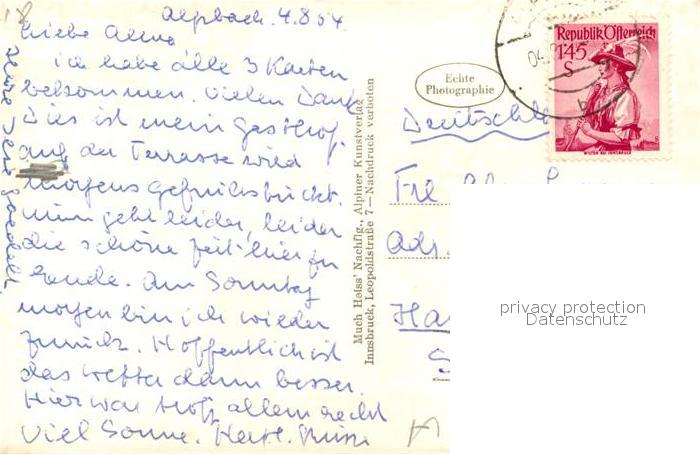 Alpbach. 4.8.54
Liebe Alma
ich habe alle 3 Karten
bekommen. Vielen Dank
Dies ist mein Gasthof.
auf der Terrasse wird
morgens gefrühstückt.
Nun geht leider, leider
die schöne Zeit hier zu
Ende. Am Sonntag
morgen bin ich wieder
zurück. Hoffentlich ist
das Wetter dann besser.
Hier war trotz allem recht
viel Sonne. Herzl. Grüsse
Much Heiss' Nachflg., Alpiner Kunstverlag
Innsbruck, Leopoldstraße 7 — Nachdruck verboten
Echte
Photographie
Republik Österreich
1'45
S
Deutschl
Frl.
Adr.
Ha
privacy protection
Datenschutz